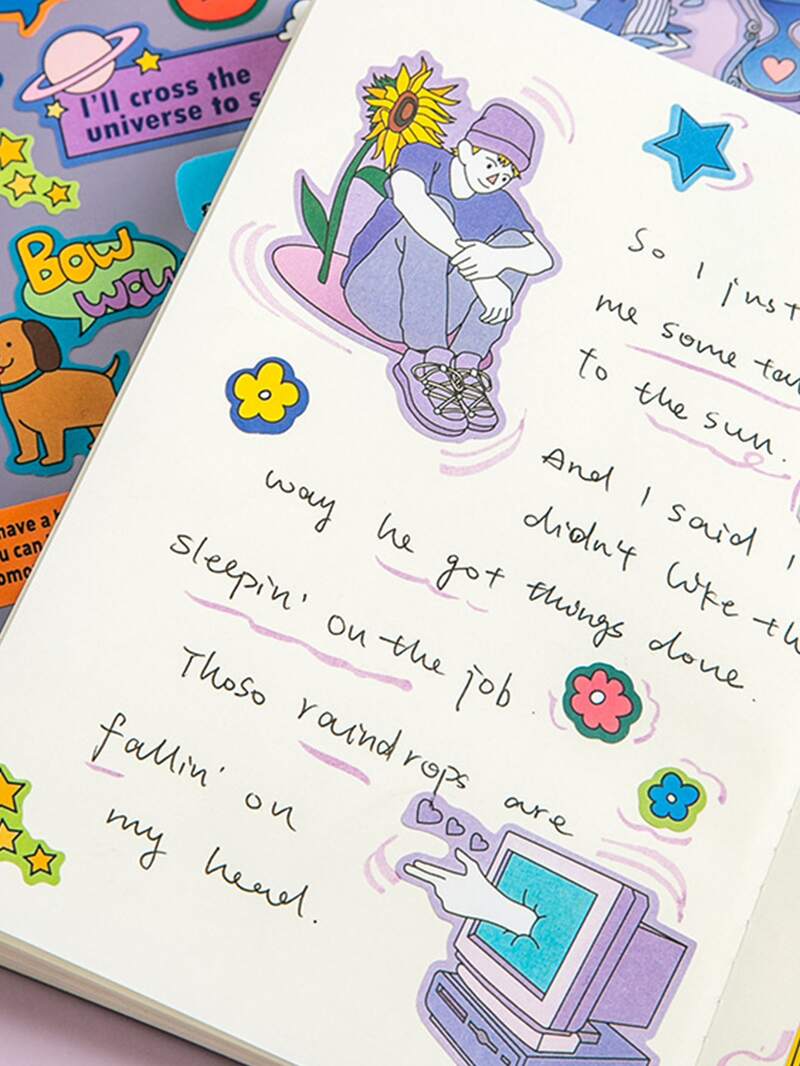 I'll cross the
universe to s
BOW
WOW
have a
u can
omo
So I just
me some tal
to the sun.
And I said I
didn't like th
way he got things done.
sleepin' on the job.
Thoso raindrops are
fallin' on
my head.